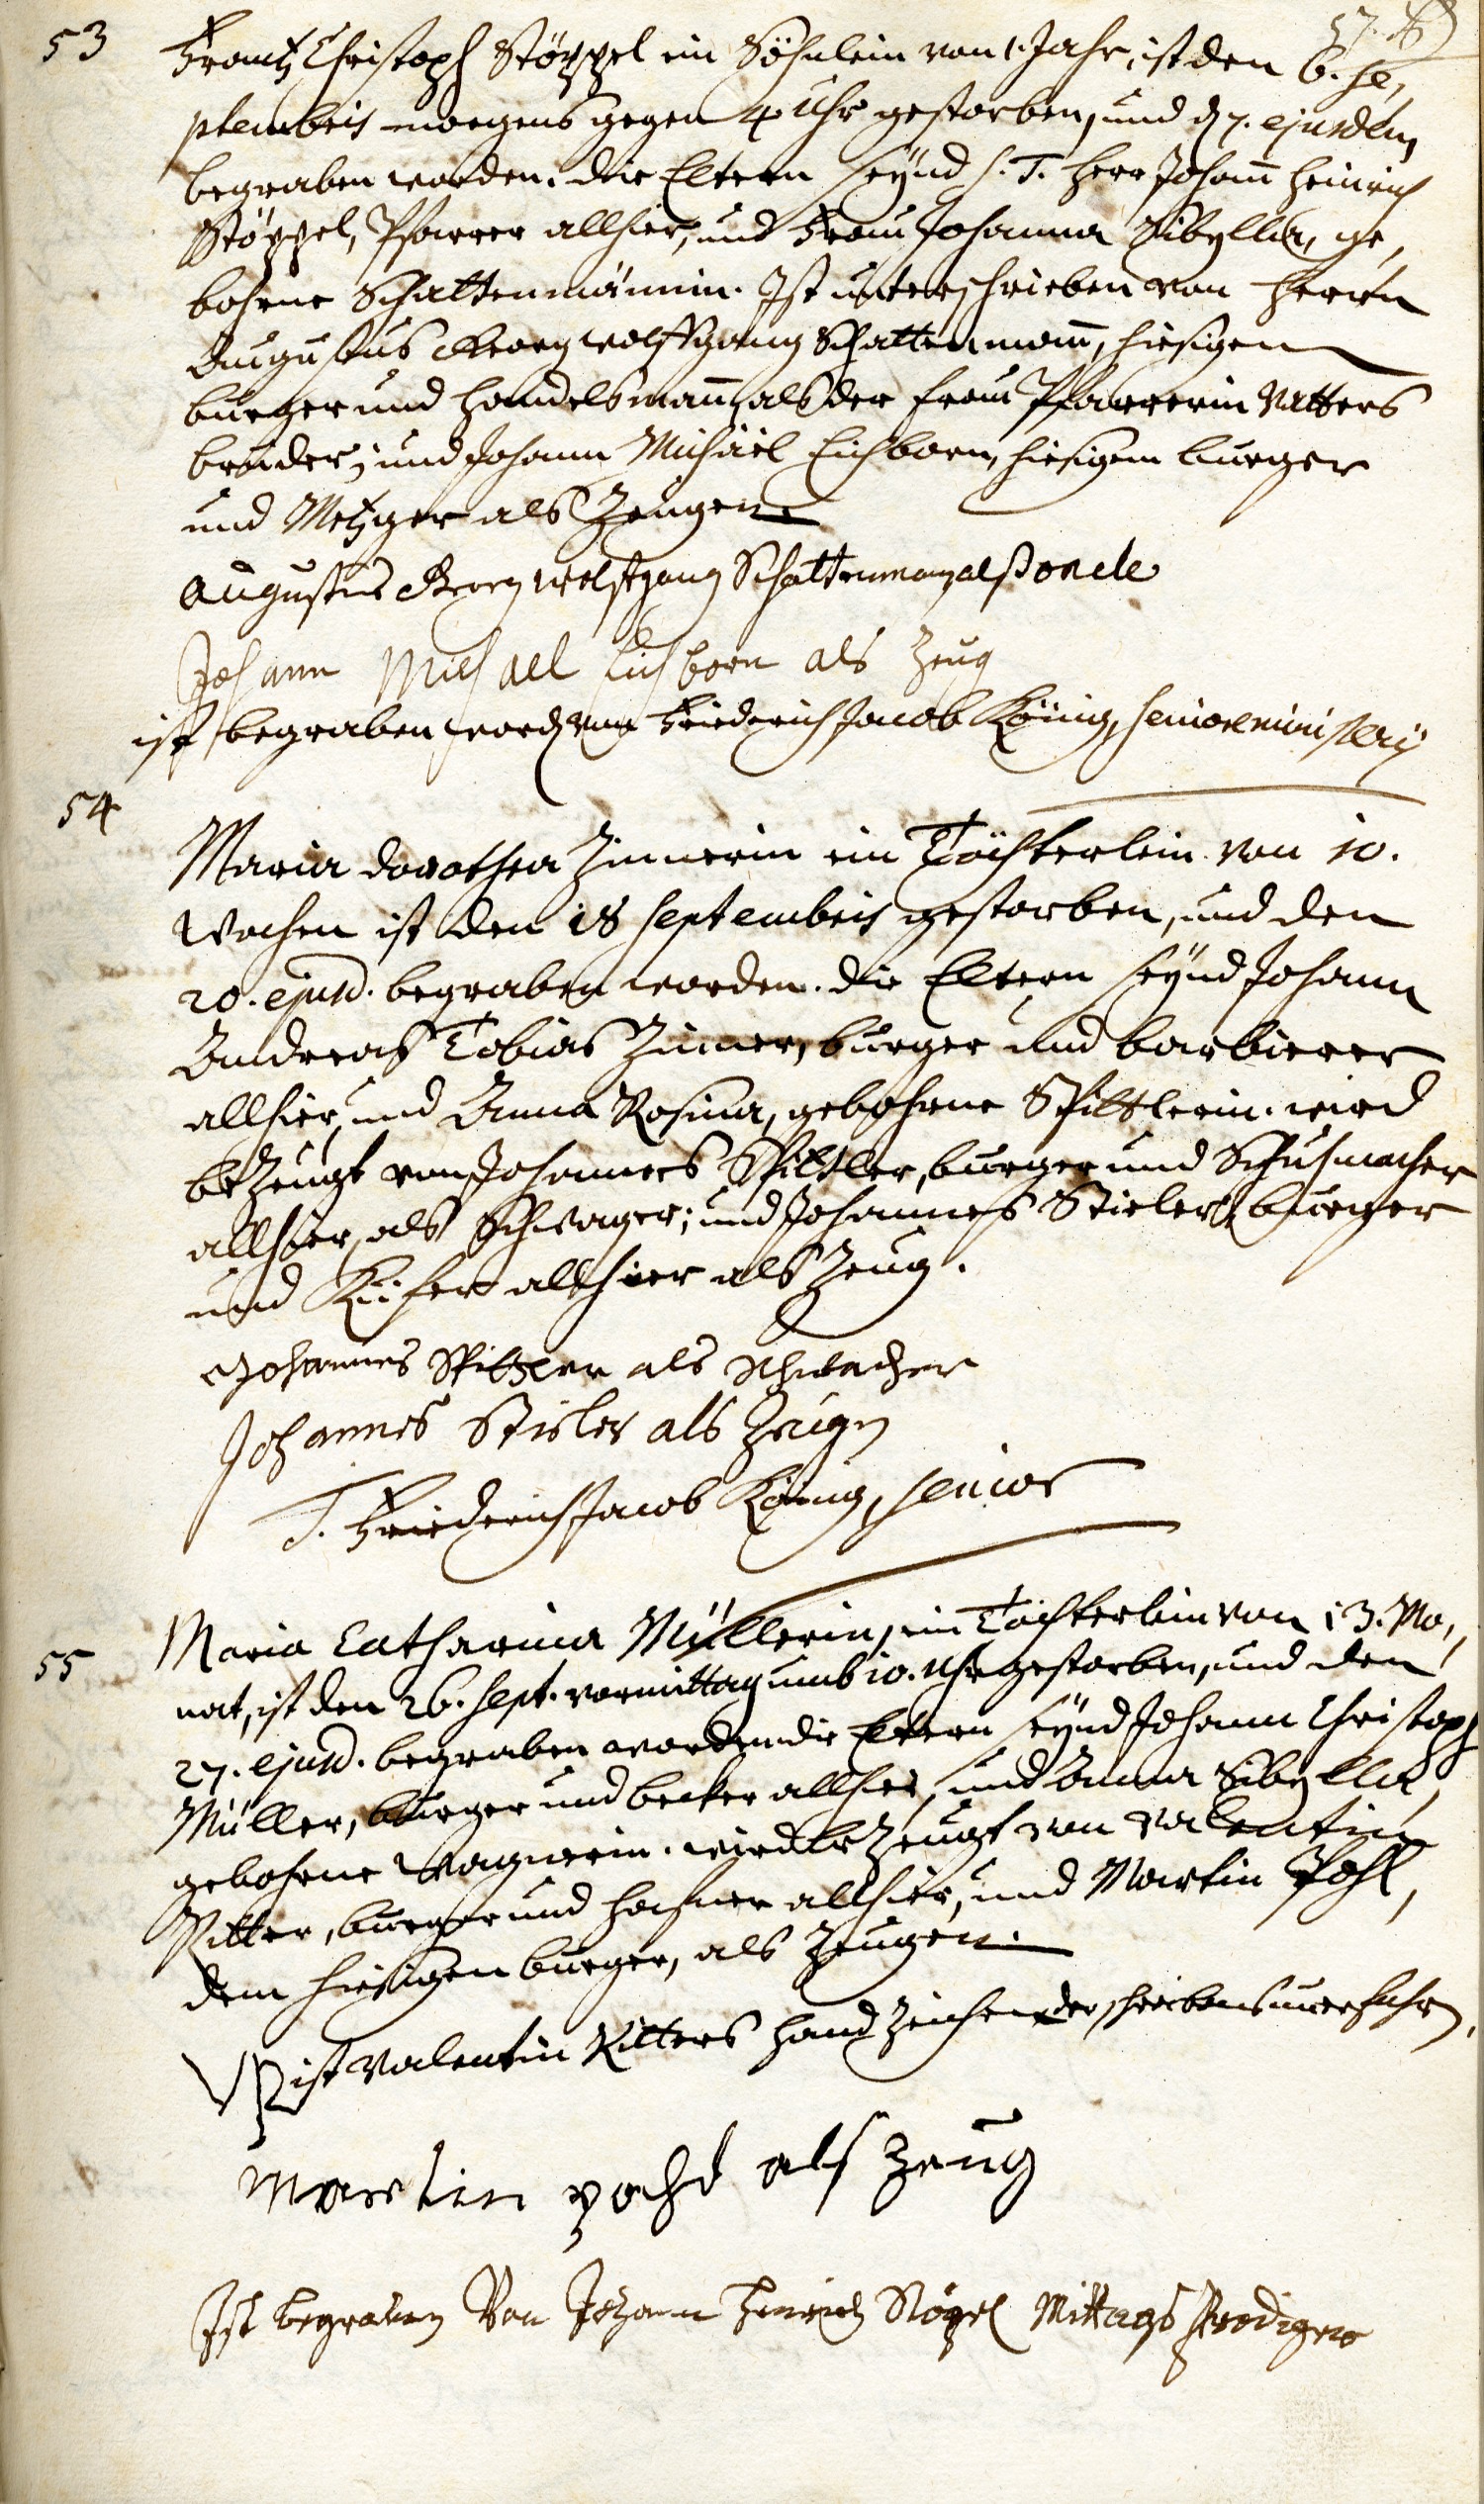 53
Frantz Christoph Stöppel ein Söhnlein von 1. Jahr, ist den 6. Se,
ptembris morgens gegen 4 Uhr gestorben, und d. 7. ejusdem
begraben worden. die Eltern seynd S. T. Herr Johann Heinrich
Stöppel, Pfarrer allhier, und Frau Johanna Sibylla, ge,
bohrne Schattenmännin. Ist unterschrieben von Herrn
Augustus Georg Wolffgang Schattenmann, hiesigen
burger und Handelsmann, als der Frau Pfarrerin Vatters
bruder; und Johann Michäel Eichborn, hiesigem burger
und Metzger als Zeugen.
Augustus Georg Wolfgang Schattenman alß oncle
Johann Michael Eichborn als Zeug
ist begraben word. von Friederich Jacob König, Seniore ministerij
54
Maria Dorothea Zimmerin ein Töchterlein von 10.
Wochen ist den 18 Septembris gestorben, und den
20. ejusd. begraben worden. die Eltern seynd Johann
Andreas Tobias Zimmer, burger und barbierer
allhier, und Anna Rosina, gebohrne Spittlerin. wird
bezeugt von Johannes Spittler, burger und Schuhmacher
allhier, als Schwager; und Johannes Stieler, burger
und Küfer allhier als Zeug.
Johannes Spittler als schwacher
Johannes Stieler als Zeugn
T. Friederich Jacob König, Senior
55
Maria Catharina Müllerin, ein Töchterlein von 13. Mo,
nat, ist den 26. Sept. vormittag umb 10. Uhr gestorben, und den
27. ejusd. begraben worden. die Eltern seynd Johann Christoph
Müller, burger und becker allhier, und Anna Sibylla,
gebohrne Wagnerin. wird bezeugt von Valentin
Ritter, burger und Hafner allhier, und Martin Pohl,
dem hiesigen burger, als Zeugen.
VR ist Valentin Ritters Handzeichen der schreibens unerfahrn,
Martin pohl als Zeug
Ist begraben Von Johann Henrich Stöpel Mittags Prediger